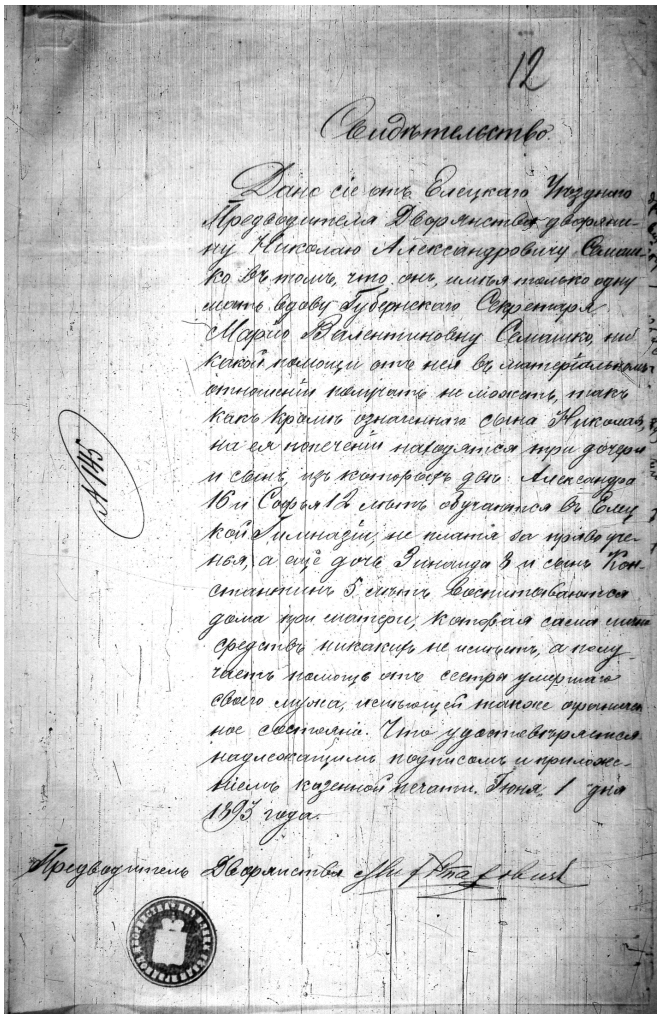 12
Свидѣтельство.
Дано сіе отъ Елецкаго Уѣзднаго
Предводителя Дворянства дворяни-
ну Николаю Александровичу Семаш-
ко въ томъ, что онъ, имѣя только одну
мать вдову Губернскаго Секретаря
Марію Валентиновну Семашко, ни
какой помощи отъ нея въ матеріальномъ
отношеніи получать не можетъ, такъ
какъ кромѣ означеннаго сына Николая,
на ея попеченіи находятся три дочери
и сынъ, изъ которыхъ дочь Александра
16 и Софья 12 лѣтъ обучаются въ Елец
кой Гимназіи, не платя за право уче-
нья, а еще дочь Зинаида 8 и сынъ Кон-
стантинъ 5 лѣтъ воспитываются
дома при матери, которая сама
средствъ никакихъ не имѣетъ, а полу-
чаетъ помощь отъ сестры умершаго
своего мужа, имѣющей также ограничен
ное состояніе. Что удостовѣряется
надлежащимъ подписомъ и приложе-
ніемъ казенной печати. Іюня, 1 дня
1893 года.
№ 145
Предводитель Дворянства